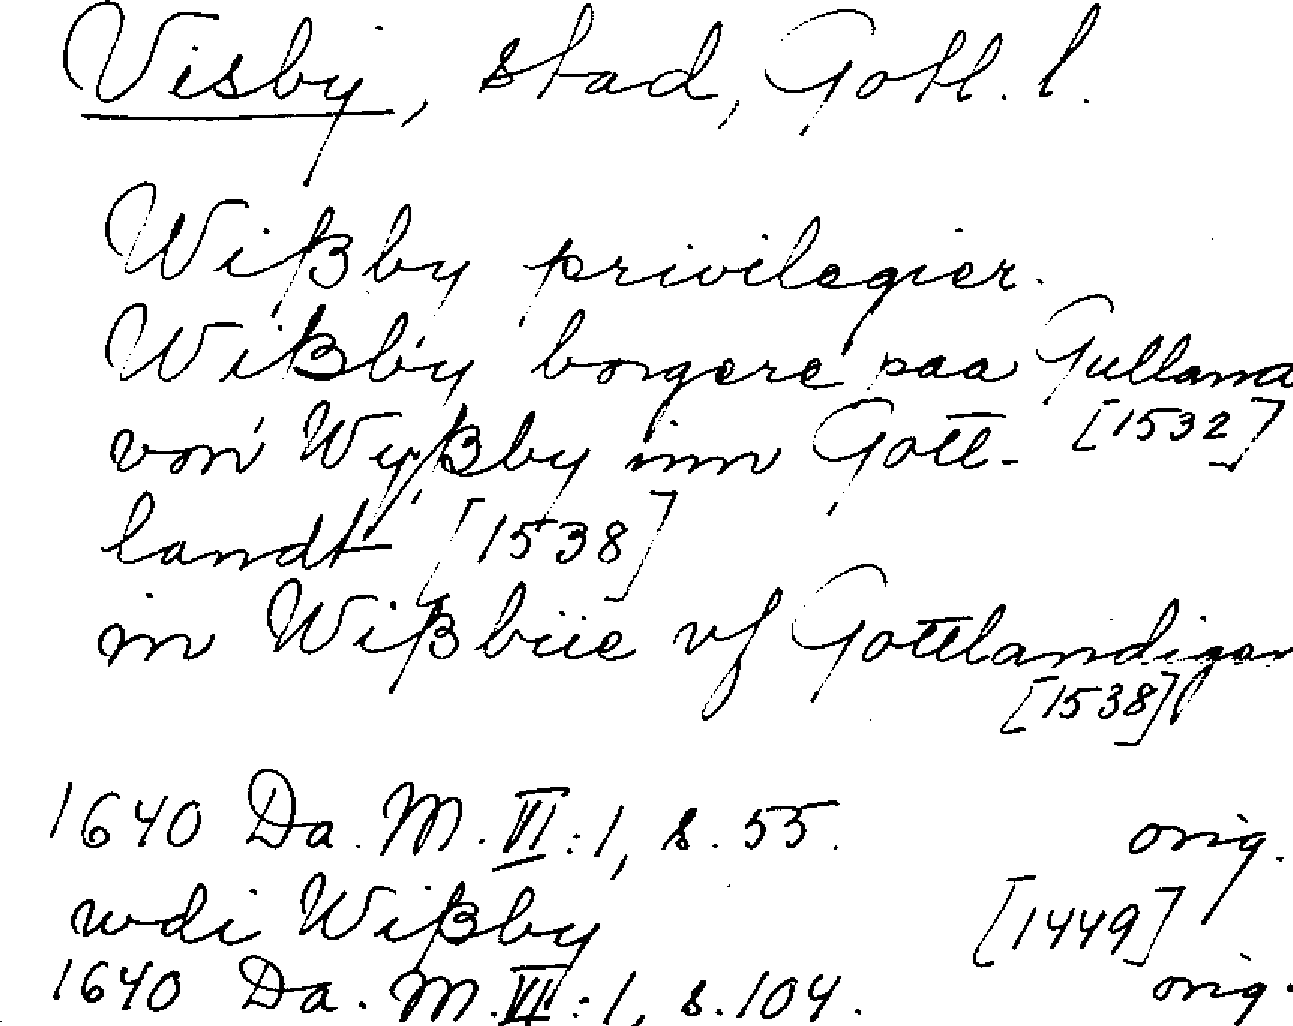 Visby, stad, Gotl. l.
Wißby privilegier.
Wißby borgere paa Gullana
[1532]
von Wyßby inn Gott-
landt [1538]
in Wißbüe vf Gottlandigen
[1538]
1640 Da. M. VI:1, s. 55. orig.
wdi Wißby [1449]
1640 Da. M. VI:1, s. 104. orig.